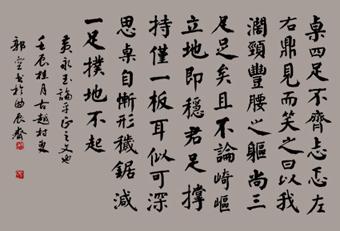 桌四足不齊忐忑左
右鼎見而笑之曰以我
濶頸豐腰之軀尚三
足足矣且不論崎嶇
立地即穩君足撐
持僅一板耳似可深
思桌自慚形穢鋸減
一足撲地不起
黃永玉論平正之文也
壬辰桂月古越村叟
郭空書於曲辰齋